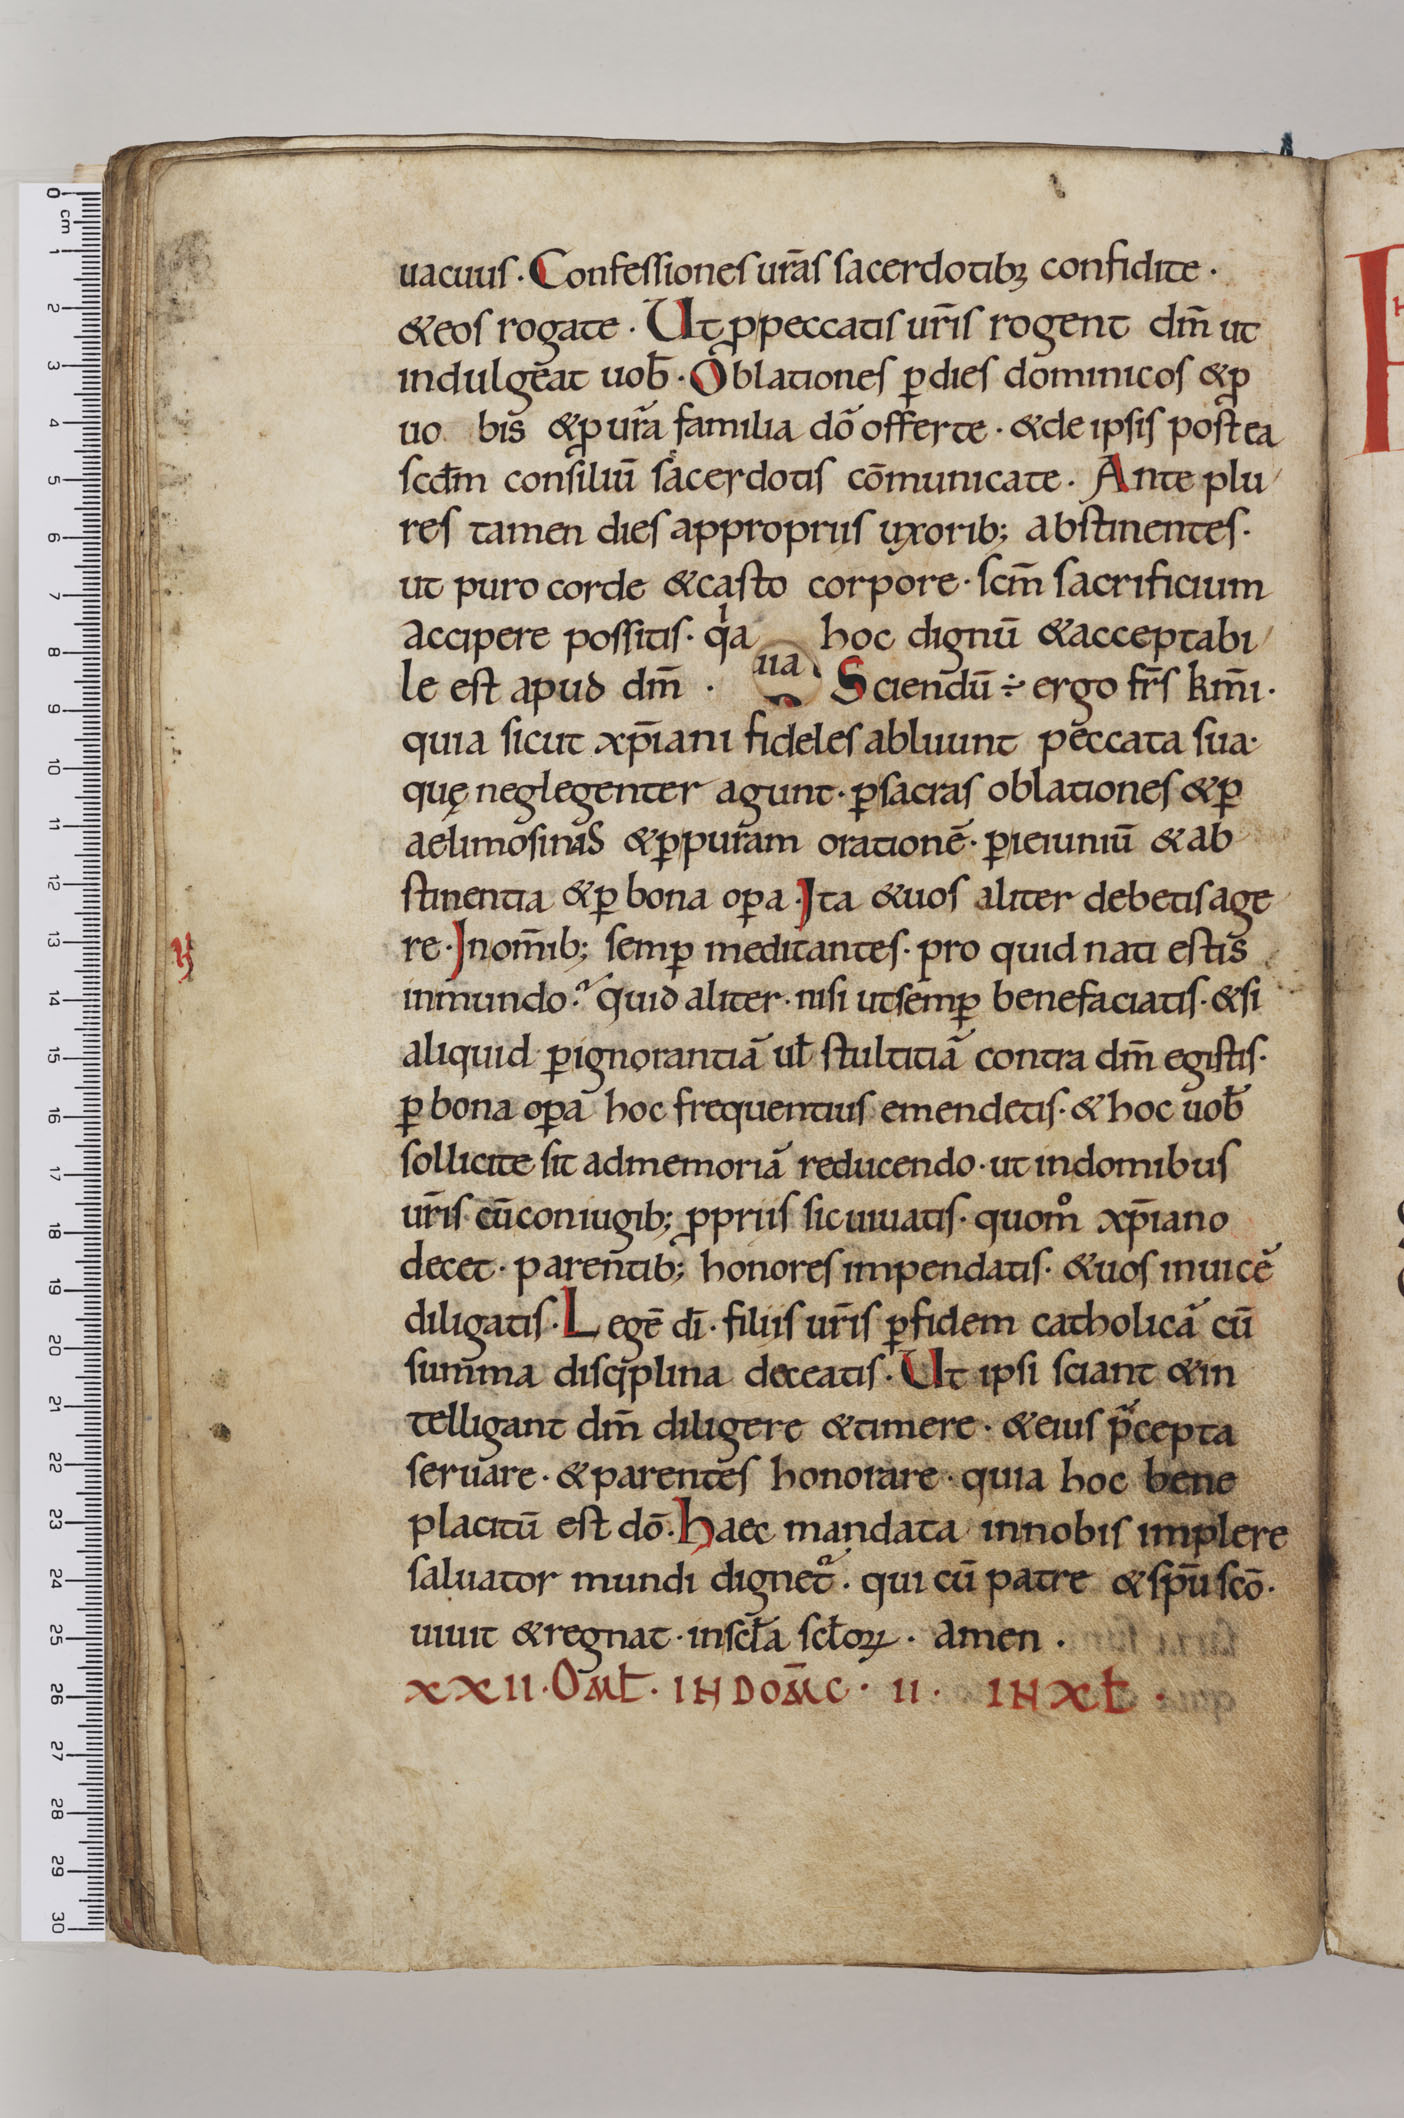 uacuus · Confessiones ur̄as sacerdotibꝫ confidite ·
& eos rogate · Ut ꝓ peccatis ur̄is rogent dm̄ ut
indulgeat uob̄ · Oblationes ꝑ dies dominicos & ꝓ
uo bis & ꝓ ur̄a familia dō offerte · & de ipsis postea
scd̄m consiliū sacerdotis cōmunicate · Ante plu
res tamen dies appropriis uxorib; abstinentes ·
ut puro corde & casto corpore · scm̄ sacrificium
accipere possitis · qia hoc dignū & acceptabi
le est apud dm̄ · Sciendū ÷ ergo fr̄s km̄i ·
ua
quia sicut xp̄iani fideles abluunt peccata sua ·
quę neglegenter agunt · ꝑ sacras oblationes & ꝑ
aelimosinis & ꝑ puram orationē · ꝑ ieiuniū & ab
stinentia & ꝑ bona oꝑa · Ita & uos aliter debetis age
re · In om̄ib; semꝑ meditantes · pro quid nati estis
in mundo ·? quid aliter · nisi ut semꝑ benefaciatis · & si
aliquid ꝑ ignorantiā ul̄ stultitiā contra dm̄ egistis ·
ꝑ bona oꝑa hoc frequentius emendetis · & hoc uob̄
sollicite sit ad memoriā reducendo · ut in domibus
ur̄is cū coniugib; ꝓpriis sic uiuatis · quomo xp̄iano
decet · parentib; honores impendatis · & uos inuicē
diligatis · Legē dī · filiis ur̄is ꝑ fidem catholicā cū
summa disciplina doceatis · Ut ipsi sciant & in
telligant dm̄ diligere & timere · & eius p̄cepta
seruare · & parentes honorare · quia hoc bene
placitū est dō · Haec mandata in nobis implere
saluator mundi dignet᷑ · qui cū patre & sp̄u scō ·
uiuit & regnat · in scl̄a scl̄oꝝ · amen ·
XXII · OML̄ · IN DOM̄C · II · IN XL̄ ·
0 cm 1 2 3 4 5 6 7 8 9 10 11 12 13 14 15 16 17 18 19 20 21 22 23 24 25 26 27 28 29 30